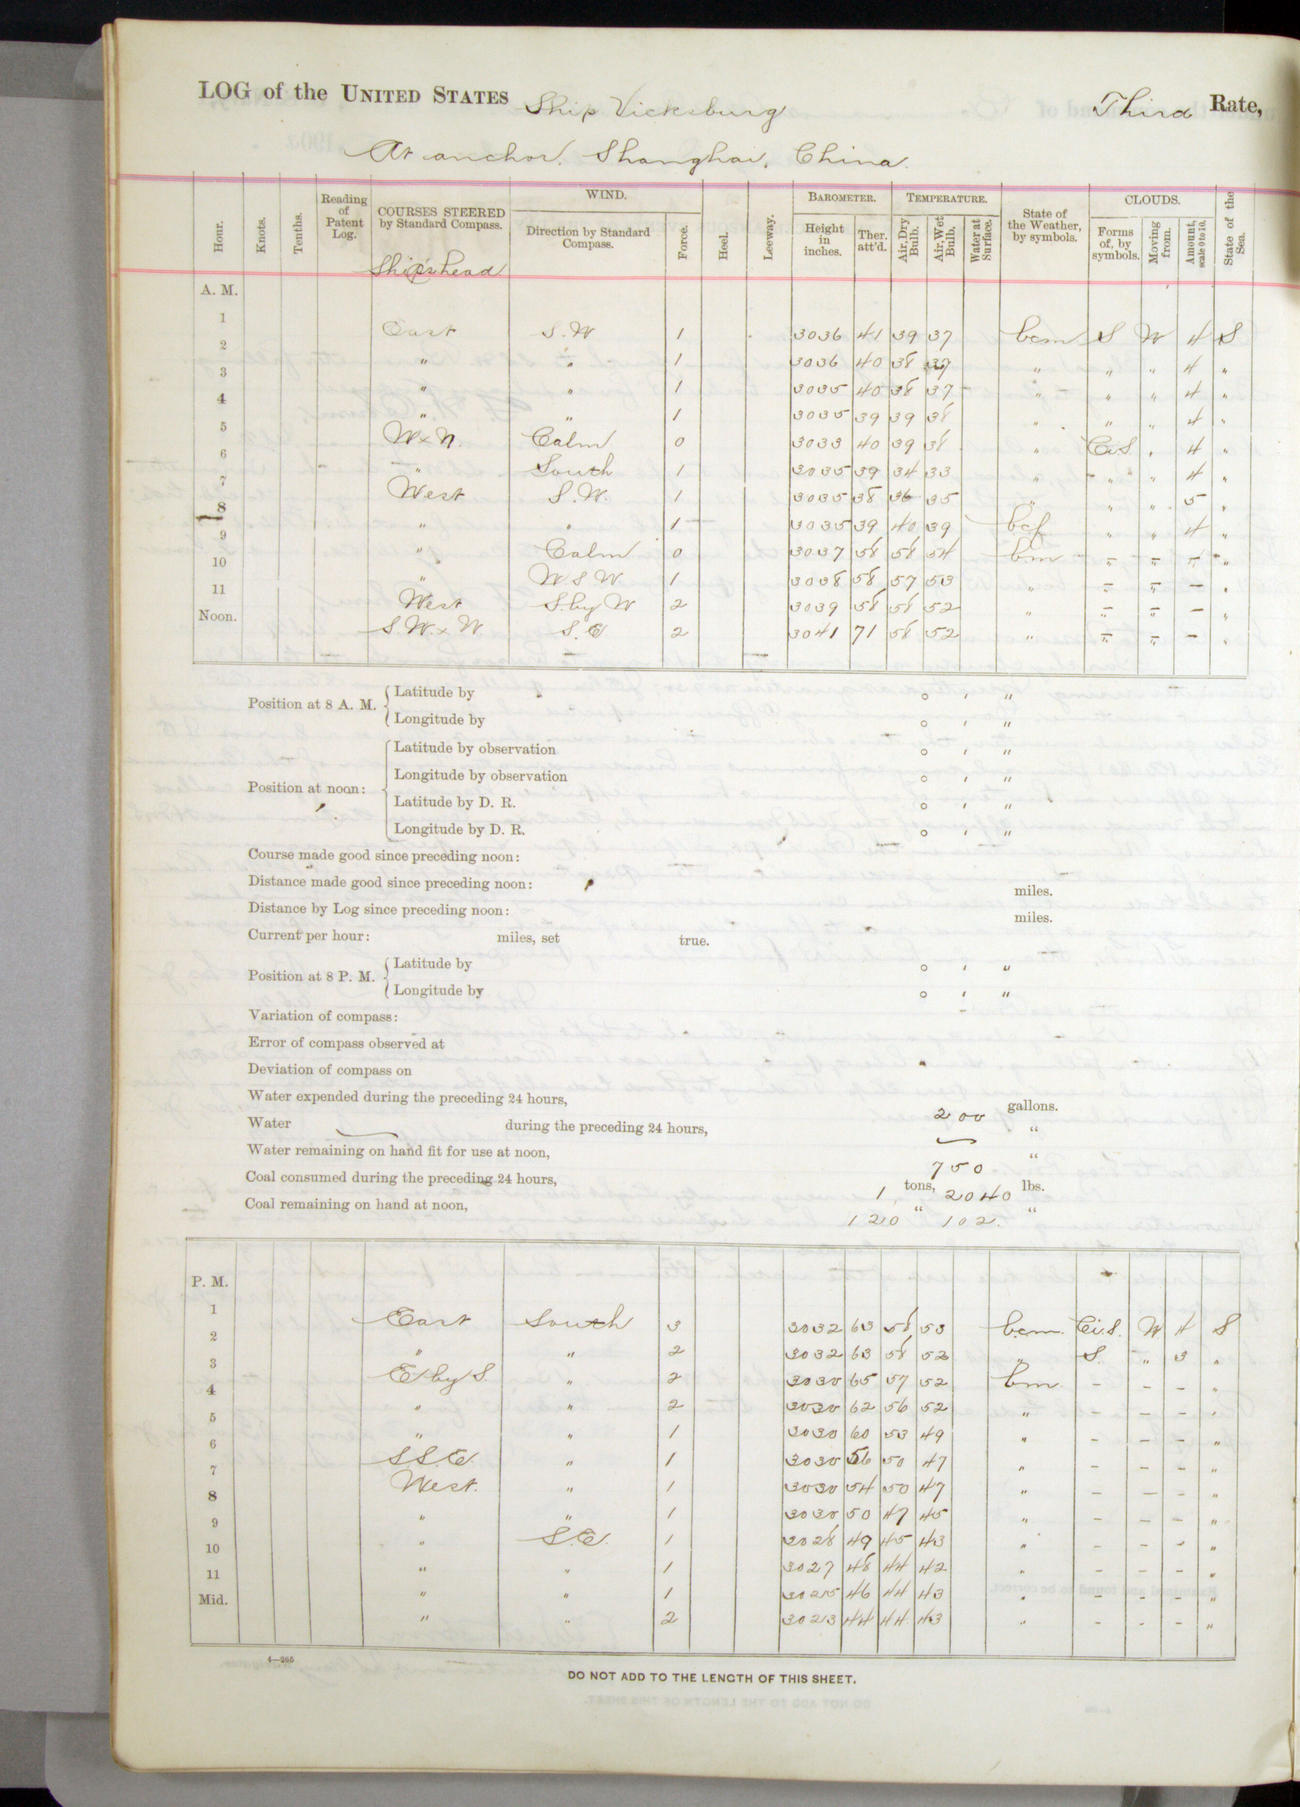 LOG of the UNITED STATES Ship Vicksburg Third Rate,
At anchor, Shanghai, China.
Hour. Knots. Tenths. Reading of Patent Log. COURSES STEERED by Standard Compass. WIND. Direction by Standard Compass. Force. Heel. Leeway. BAROMETER. Height in inches. Ther. att'd. TEMPERATURE. Air, Dry Bulb. Air, Wet Bulb. Water at Surface. State of the Weather, by symbols. CLOUDS. Forms of, by symbols. Moving from. Amount, scale 0 to 10. State of the Sea.
Ship's head
A. M.
1 East S.W 1 3036 41 39 37 bcm S W 4 S
2 " " 1 3036 40 38 37 " " " 4 "
3 " " 1 3035 40 38 37 " " " 4 "
4 " " 1 3035 39 39 38 " " " 4 "
5 W x N. Calm 0 3033 40 39 38 " Ci.S. " 4 "
6 " South 1 3035 39 34 33 " " " 4 "
7 West S.W. 1 3035 38 36 35 " " " 5 "
8 " " 1 3035 39 40 39 bcf " " 4 "
9 " Calm 0 3037 58 58 54 bm - - - "
10 " W.S.W. 1 3038 58 57 53 " - - - "
11 West S. by W 2 3039 58 58 52 " - - - "
Noon. S.W. x W. S.E 2 3041 71 58 52 " - - - "
Position at 8 A. M. Latitude by ° ′ ″
Longitude by ° ′ ″
Position at noon: Latitude by observation ° ′ ″
Longitude by observation ° ′ ″
Latitude by D. R. ° ′ ″
Longitude by D. R. ° ′ ″
Course made good since preceding noon:
Distance made good since preceding noon: miles.
Distance by Log since preceding noon: miles.
Current per hour: miles, set true.
Position at 8 P. M. Latitude by ° ′ ″
Longitude by ° ′ ″
Variation of compass:
Error of compass observed at
Deviation of compass on
Water expended during the preceding 24 hours, 200 gallons.
Water during the preceding 24 hours, "
Water remaining on hand fit for use at noon, 750 "
Coal consumed during the preceding 24 hours, 1 tons, 2040 lbs.
Coal remaining on hand at noon, 120 " 102. "
P. M.
1 East South 3 3032 63 58 53 bcm. Ci.S. W 4 S
2 " " 2 3032 63 58 52 " S. " 3 "
3 E by S. " 2 3030 65 57 52 bm - - - "
4 " " 2 3030 62 56 52 " - - - "
5 " " 1 3030 60 53 49 " - - - "
6 S.S.E. " 1 3030 56 50 47 " - - - "
7 West. " 1 3030 54 50 47 " - - - "
8 " " 1 3030 50 47 45 " - - - "
9 " S.E. 1 3028 49 45 43 " - - - "
10 " " 1 3027 48 44 42 " - - - "
11 " " 1 30215 46 44 43 " - - - "
Mid. " " 2 30213 44 44 43 " - - - "
DO NOT ADD TO THE LENGTH OF THIS SHEET.